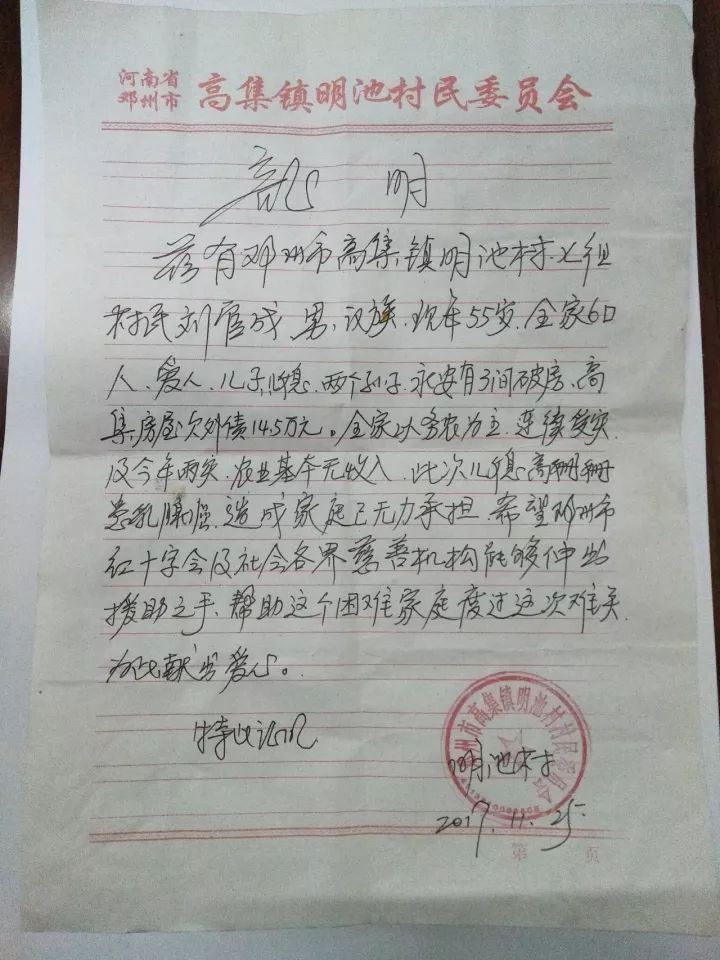 河南省
邓州市 高集镇明池村民委员会
证 明
兹有邓州市高集镇明池村七组
村民刘官成、男、汉族、现年55岁、全家6口
人、爱人、儿子、儿媳、两个孙子、永安有3间破房、高
集房屋欠外债14.5万元。全家以务农为主、连续受灾、
及今年雨灾、农业基本无收入、此次儿媳高珊珊
患乳腺癌、造成家庭已无力承担、希望邓州市
红十字会及社会各界慈善机构能够伸出
援助之手、帮助这个困难家庭度过这次难关、
为此献出爱心。
特此证明
邓州市高集镇明池村村民委员会
明池村
2017.11.25
第 页